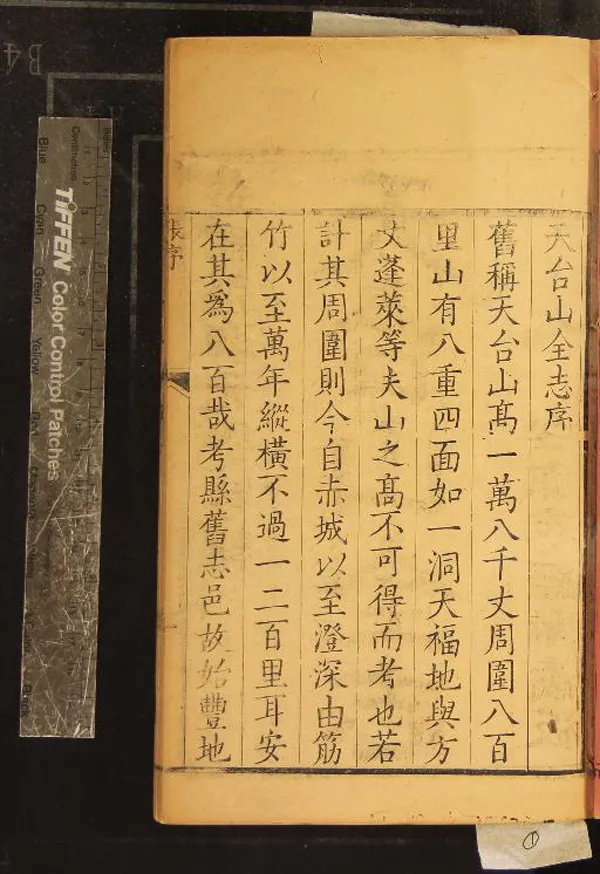 天台山全志序
舊稱天台山高一萬八千丈周圍八百
里山有八重四面如一洞天福地與方
丈蓬萊等夫山之高不可得而考也若
計其周圍則今自赤城以至澄深由筋
竹以至萬年縱橫不過一二百里耳安
在其為八百哉考縣舊志邑故始豐地
張序
TIFFEN Color Control Patches
Centimetres
Blue
Cyan
Green
Yellow
Red
Black
B4
①